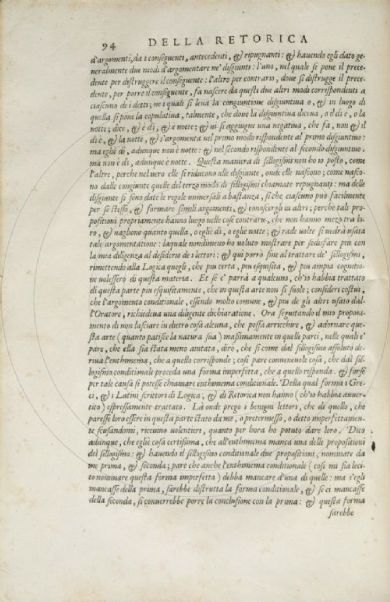 94 DELLA RETORICA
d'argomenti, da i conseguenti, antecedenti, & repugnanti: & hauendo egli dato ge-
neralmente due modi d'argomentare ne' disgiunti: l'uno, nel quale si pone il prece-
dente per distruggere il conseguente: l'altro per contrario, doue si distrugge il prece-
dente, per porre il conseguente, fa nascere da questi due altri modi corrispondenti a
ciascuno de i detti; ne i quali si leua la congiuntione disgiuntiua o, & in luogo di
quella si pone la copulatiua, talmente, che doue la disgiuntiua diceua, o il dì è, o la
notte; dice, & è dì, & è notte; & ui si aggiugne una negatiua, che fa, non & il
dì è, & la notte, & s'argomenta nel primo modo rispondendo al primo disgiuntiuo:
ma egli è dì, adunque non è notte: & nel secondo rispondente al secondo disgiuntiuo.
ma non è dì, adunque è notte. Questa maniera di sillogismi non ho io posto, come
l'altre, perche nel uero elle si riducono alle disgiunte, onde elle nascono; come nasco-
no dalle congiunte quelle del terzo modo di sillogismi chiamate repugnanti: ma delle
disgiunte si sono date le regole uniuersali a bastanza, sì che ciascuno può facilmente
per se stesso, & formare simili argomenti, & conoscergli in altri; perche tali pro-
positioni propriamente hanno luogo nelle cose contrarie, che non hanno mezo tra lo-
ro, & uagliono quanto quella, o egli è dì, o egli è notte; & rade uolte si uedrà usata
tale argomentatione: laquale nondimeno ho uoluto mostrare per sodisfare più con
la mia diligenza al desiderio de i lettori: & qui porrò fine al trattare de' sillogismi,
rimettendo alla Logica quegli, che più certa, più esquisita, & più ampia cognitio-
ne uolessero di questa materia. Et se e' parrà a qualcuno, ch'io habbia trattato
di questa parte più esquisitamente, che in questa arte non si suole; consideri costui,
che l'argomento conditionale, essendo molto comune, & più de gli altri usato dal-
l'Oratore, richiedeua una diligente dichiaratione. Ora seguitando il mio propo-
mento di non lasciare in dietro cosa alcuna, che possa arricchire, & adornare que-
sta arte (quanto patisce la natura sua) massimamente in quelle parti, nelle quali e'
pare, che ella sia stata meno aiutata, dirò, che sì come dal sillogismo assoluto de-
riua l'enthimema, che a quello corrisponde; così pare conueneuole cosa, che dal sil-
logismo conditionale proceda una forma imperfetta, che a quello risponda. & forse
per tale causa si potesse chiamare enthimema conditionale. Della qual forma i Gre-
ci, & i Latini scrittori di Logica, & di Retorica non hanno (ch'io habbia auuer-
tito) espressamente trattato. Là onde prego i benigni lettori, che di quello, che
paresse loro essere in questa parte stato da me, o pretermesso, o detto imperfettamen-
te scusandomi, riceuino uolentieri, quanto per hora ho potuto dare loro. Dico
adunque, che egli è cosa certissima, che all'enthimema manca una delle propositioni
del sillogismo: & hauendo il sillogismo conditionale due propositioni, nominate da
me prima, & seconda; pare che anche l'enthimema conditionale (così mi sia leci-
to nominare questa forma imperfetta) debba mancare d'una di quelle: ma s'egli
mancasse della prima, sarebbe distrutta la forma conditionale, & se ei mancasse
della seconda, si conuerrebbe porre la conclusione con la prima: & questa forma
sarebbe